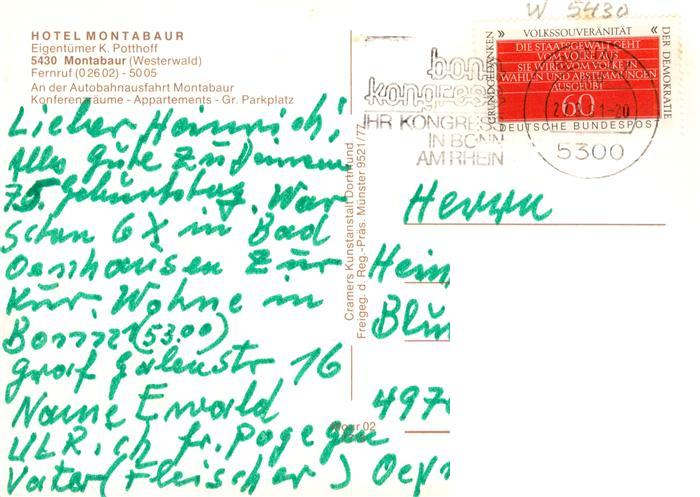 W 5430
HOTEL MONTABAUR
Eigentümer K. Potthoff
5430 Montabaur (Westerwald)
Fernruf (02602) - 5005
An der Autobahnausfahrt Montabaur
Konferenzräume - Appartements - Gr. Parkplatz
Lieber Heinrich!
Alles Gute zu Deinem
75. Geburtstag. War
schon 6x in Bad
Oenhausen zur
Kur. Wohne in
Bonn 1 (53.00)
Graf Galenstr 16
Name Ewald
ULRich fr. Pogegen
Vater (Fleischer)
Cramers Kunstanstalt Dortmund
Freigeg. d. Reg.-Präs. Münster 9521/77
02
bonn
kongress
IHR KONGRESS
IN BONN
AM RHEIN
5300
GRUNDGEDANKEN
» VOLKSSOUVERÄNITÄT «
DER DEMOKRATIE
DIE STAATSGEWALT GEHT
VOM VOLKE AUS
SIE WIRD VOM VOLKE IN
WAHLEN UND ABSTIMMUNGEN
AUSGEÜBT
60
DEUTSCHE BUNDESPOST
Herrn
Hein
Blüm
497
Oeyn